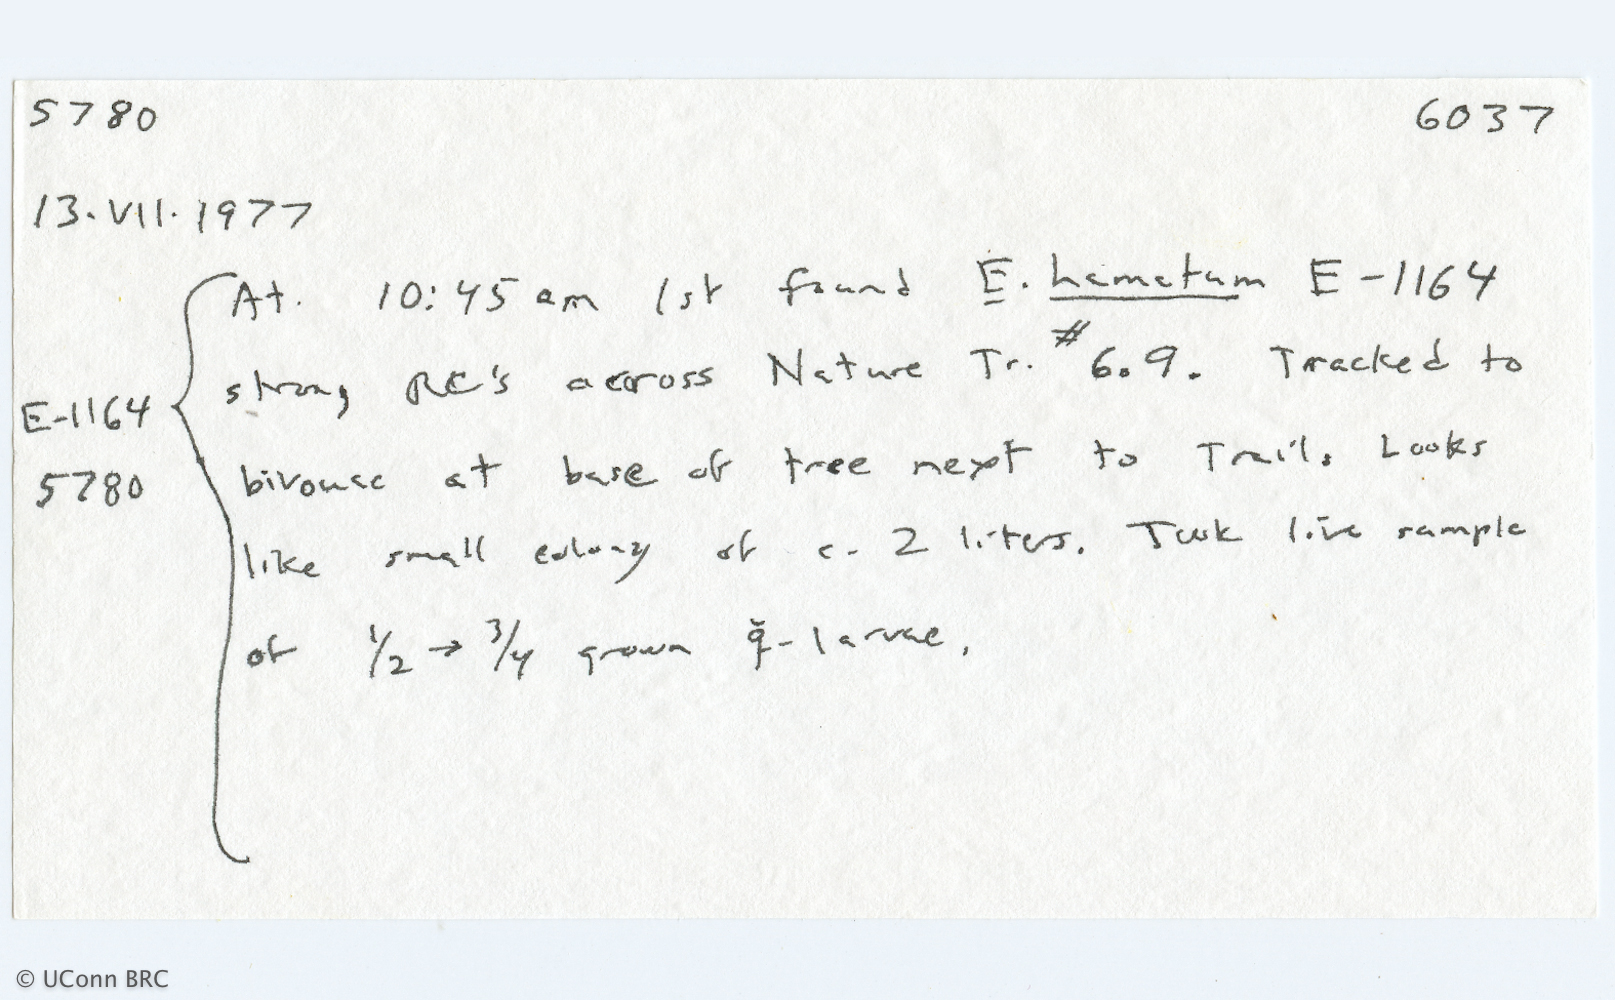 5780 6037
13.VII.1977
At. 10:45 am 1st found E. hamatum E-1164
strong RC's across Nature Tr. #6.9. Tracked to
E-1164
bivouac at base of tree next to Trail. Looks
5780
like small colony of c. 2 liters. Took live sample
of 1/2 → 3/4 grown ☿-larvae.
© UConn BRC